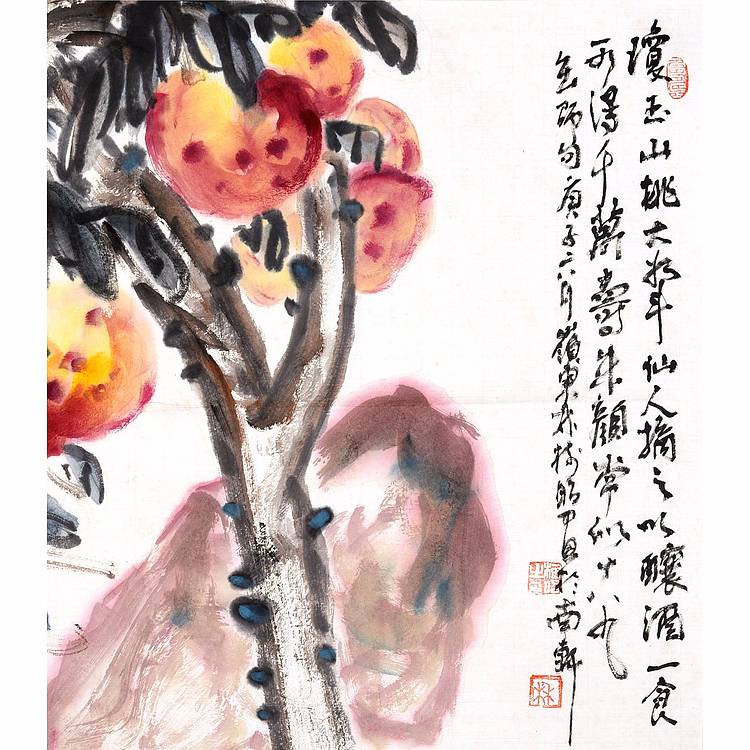 瓊玉山桃大如斗仙人摘之以釀酒一食
可得千萬壽朱顏常似十八九
缶師句庚子六月嶺東林樹昭於南軒